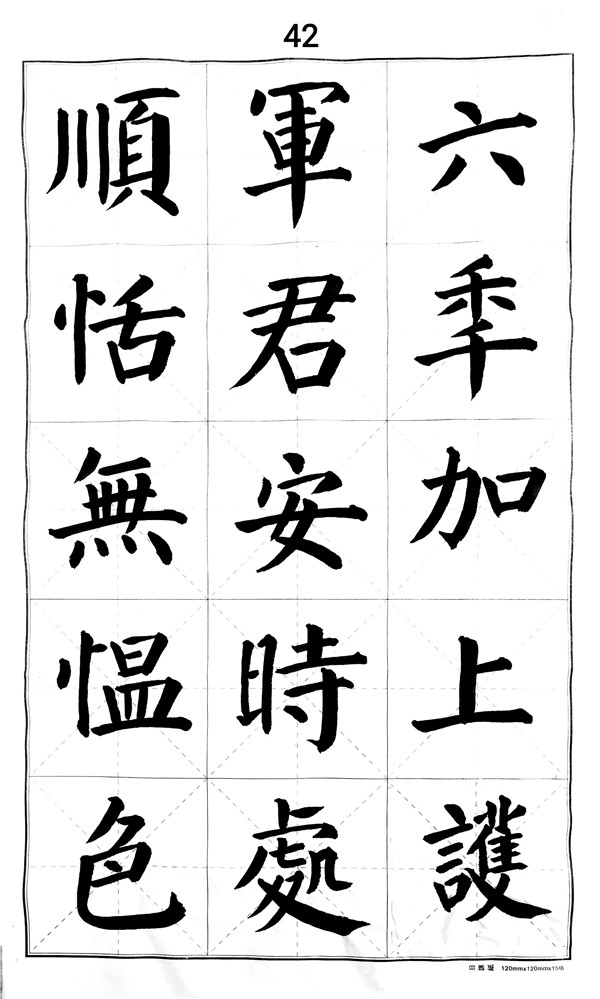 42
六秊加上護
軍君安時處
順恬無愠色
120mmx120mmx15格